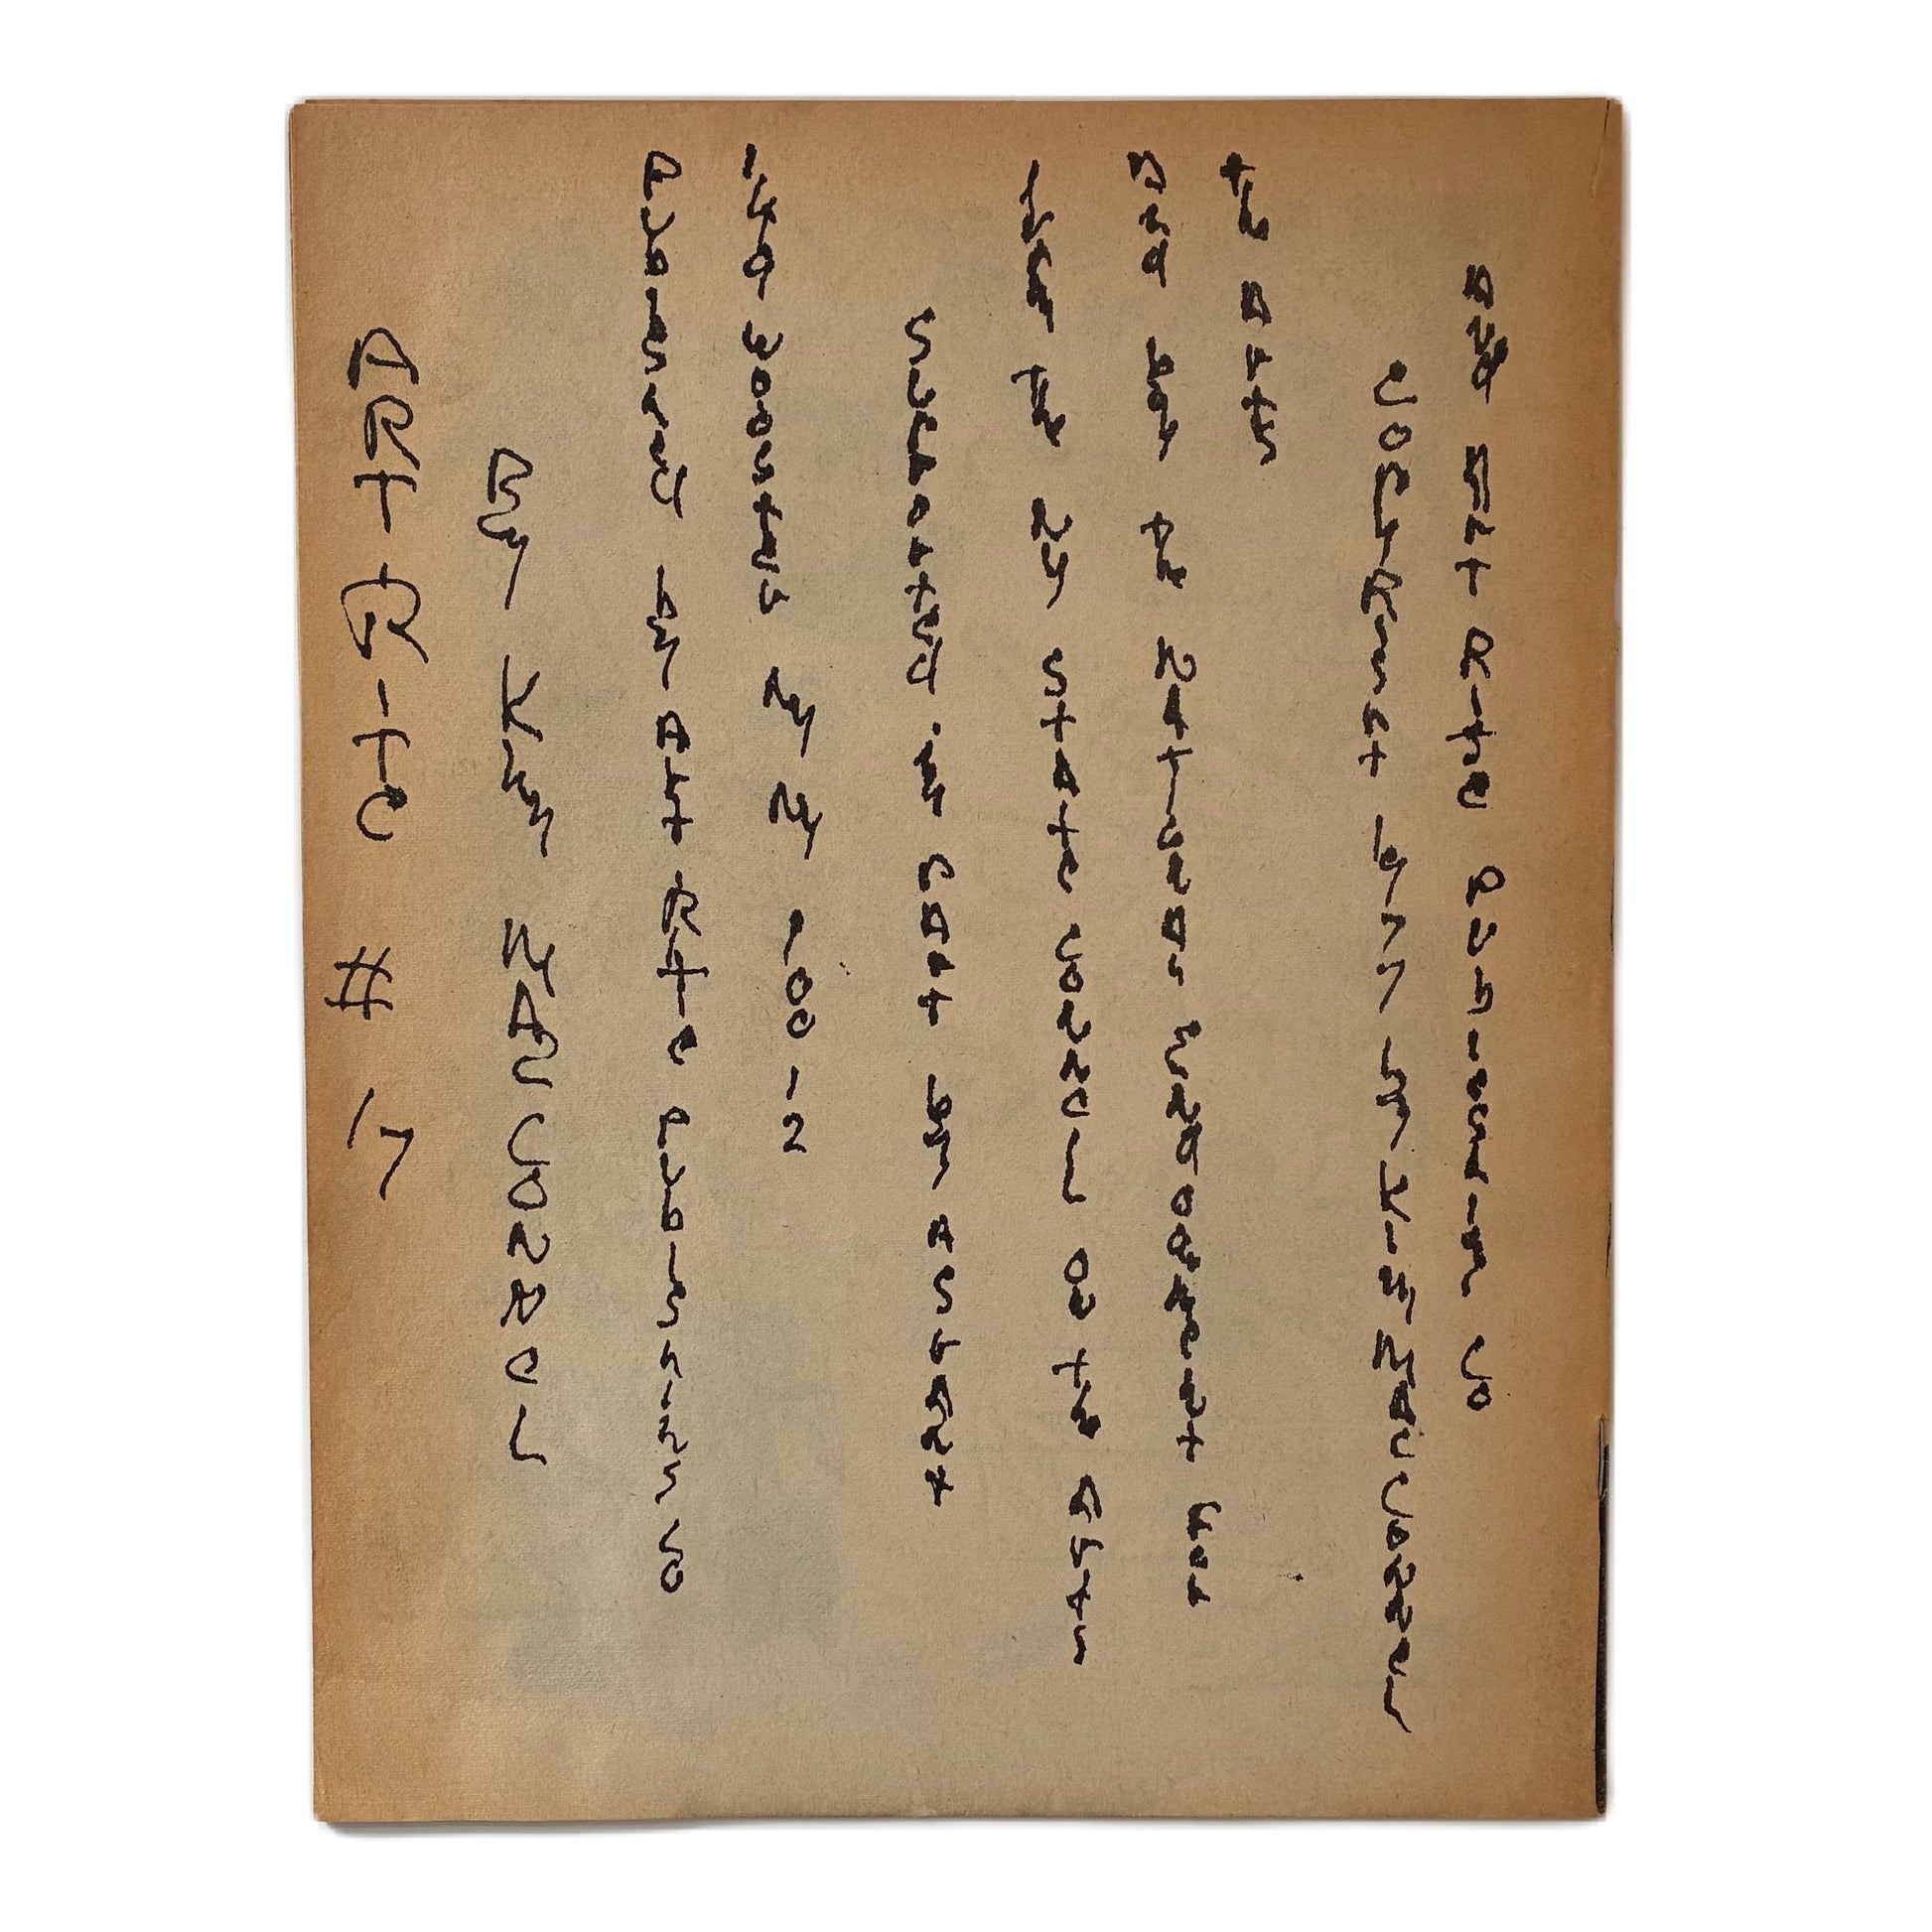 ART RITE # 17
By Kim MAC CONNEL
Published by ART RITE Publishing Co
149 wooster NY NY 10012
Supported in PArt by A Grant
from the NY StAte Council on the Arts
And by the NATional Endowment For
the Arts
COPyRight 1977 by Kim MAC Connel
And ART RITE Publishing Co